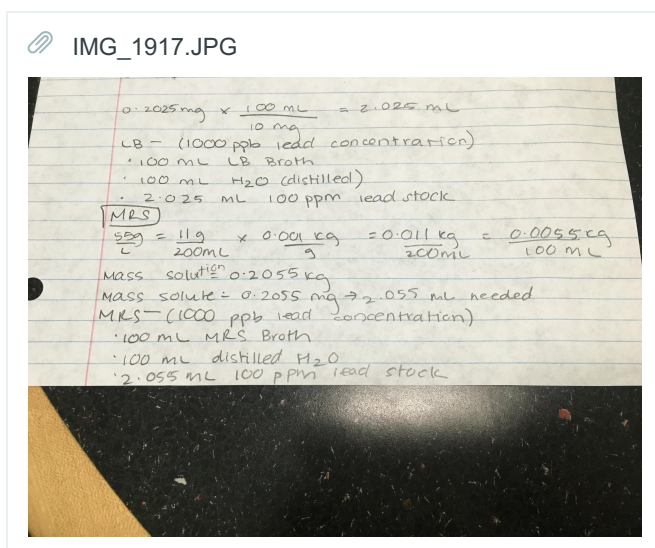 IMG_1917.JPG
0.2025mg × 100 mL / 10 mg = 2.025 mL
LB - (1000 ppb lead concentration)
• 100 mL LB Broth
• 100 mL H2O (distilled)
• 2.025 mL 100 ppm lead stock
MRS
55g / L = 11g / 200mL × 0.001 kg / g = 0.011 kg / 200mL = 0.0055 kg / 100 mL
Mass solution = 0.2055 kg
Mass solute = 0.2055 mg → 2.055 mL needed
MRS - (1000 ppb lead concentration)
• 100 mL MRS Broth
• 100 mL distilled H2O
• 2.055 mL 100 ppm lead stock